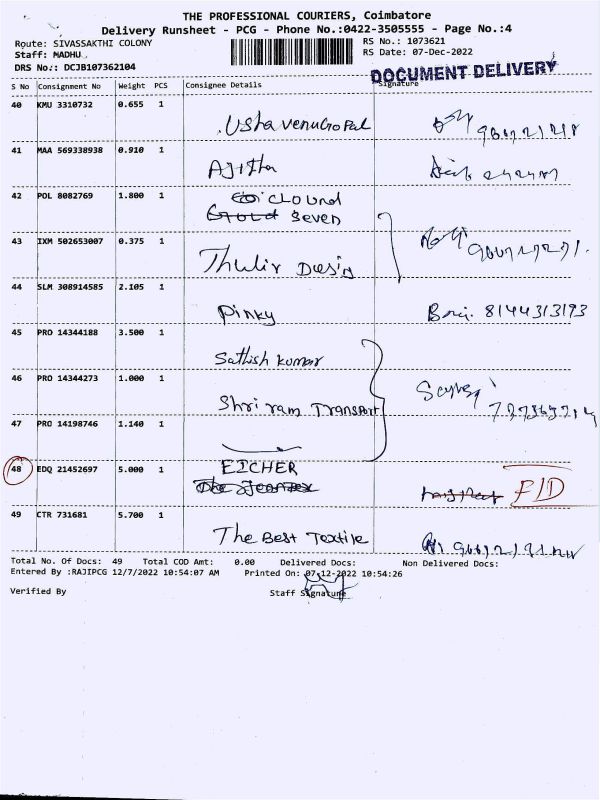 THE PROFESSIONAL COURIERS, Coimbatore
Delivery Runsheet - PCG - Phone No.:0422-3505555 - Page No.:4
Route: SIVASSAKTHI COLONY RS No.: 1073621
Staff: MADHU RS Date: 07-Dec-2022
DRS No.: DCJB107362104
DOCUMENT DELIVERY
S No Consignment No Weight PCS Consignee Details Signature
40 KMU 3310732 0.655 1
Usha venuGopal
41 MAA 569338938 0.910 1
Ajitha
42 POL 8082769 1.800 1
CLOUnd
Seven
43 IXM 502653007 0.375 1
Thulir Dasig
44 SLM 308914585 2.105 1
Pinky 8144313193
45 PRO 14344188 3.500 1
Sathish kumar
46 PRO 14344273 1.000 1
Shri ram Transport
47 PRO 14198746 1.140 1
48 EDQ 21452697 5.000 1
EICHER
F/D
49 CTR 731681 5.700 1
The Best Textile
Total No. Of Docs: 49 Total COD Amt: 0.00 Delivered Docs: Non Delivered Docs:
Entered By :RAJIPCG 12/7/2022 10:54:07 AM Printed On: 07-12-2022 10:54:26
Verified By Staff Signature